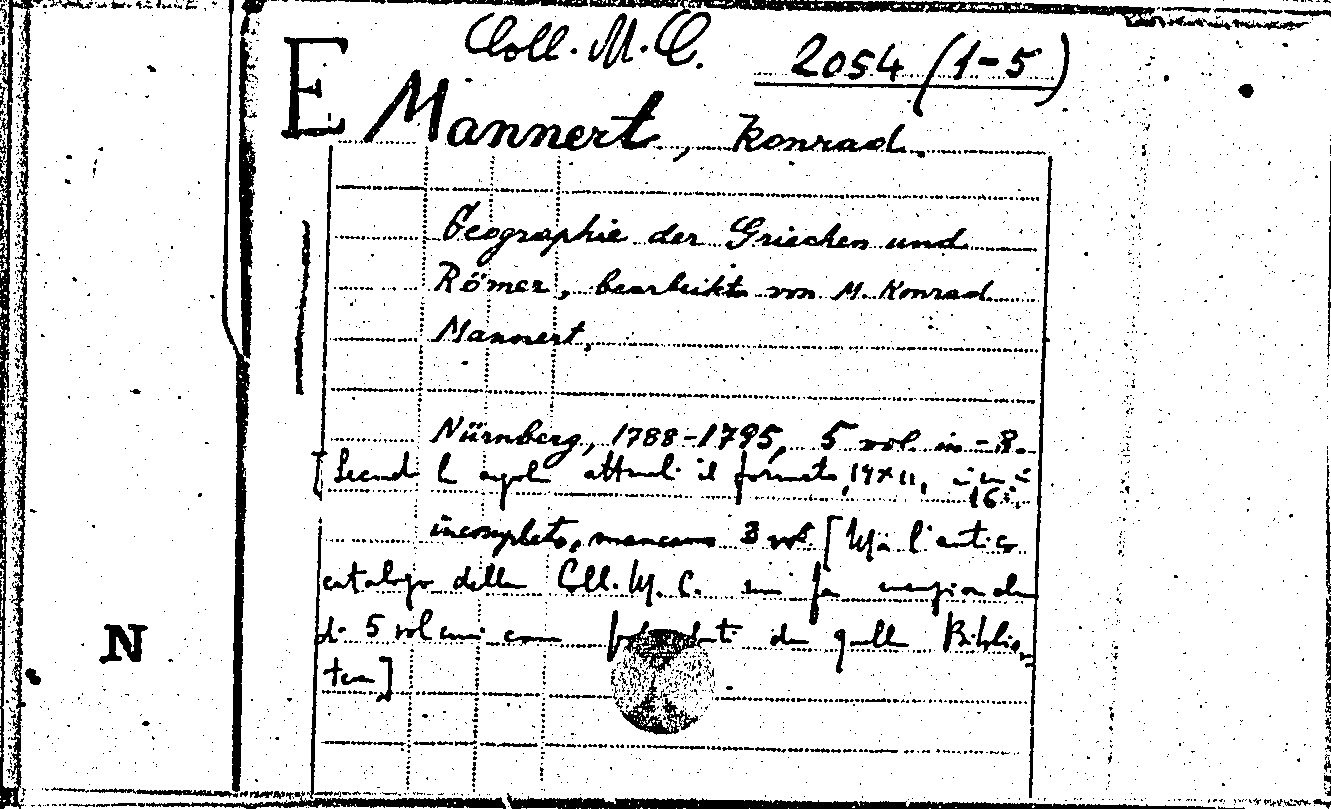 Coll. M. C. 2054 (1-5)
E Mannert, Konrad.
Geographie der Griechen und
Römer, bearbeitet von M. Konrad
Mannert.
Nürnberg, 1788-1795, 5 vol. in-8.
[Secondo le regole attuali il formato, 19x11, è in
16º.
incompleto, mancano 3 vol. [Ma l'antico
catalogo della Coll. M. C. menzione
di 5 volumi come di quella Biblio
teca]
N